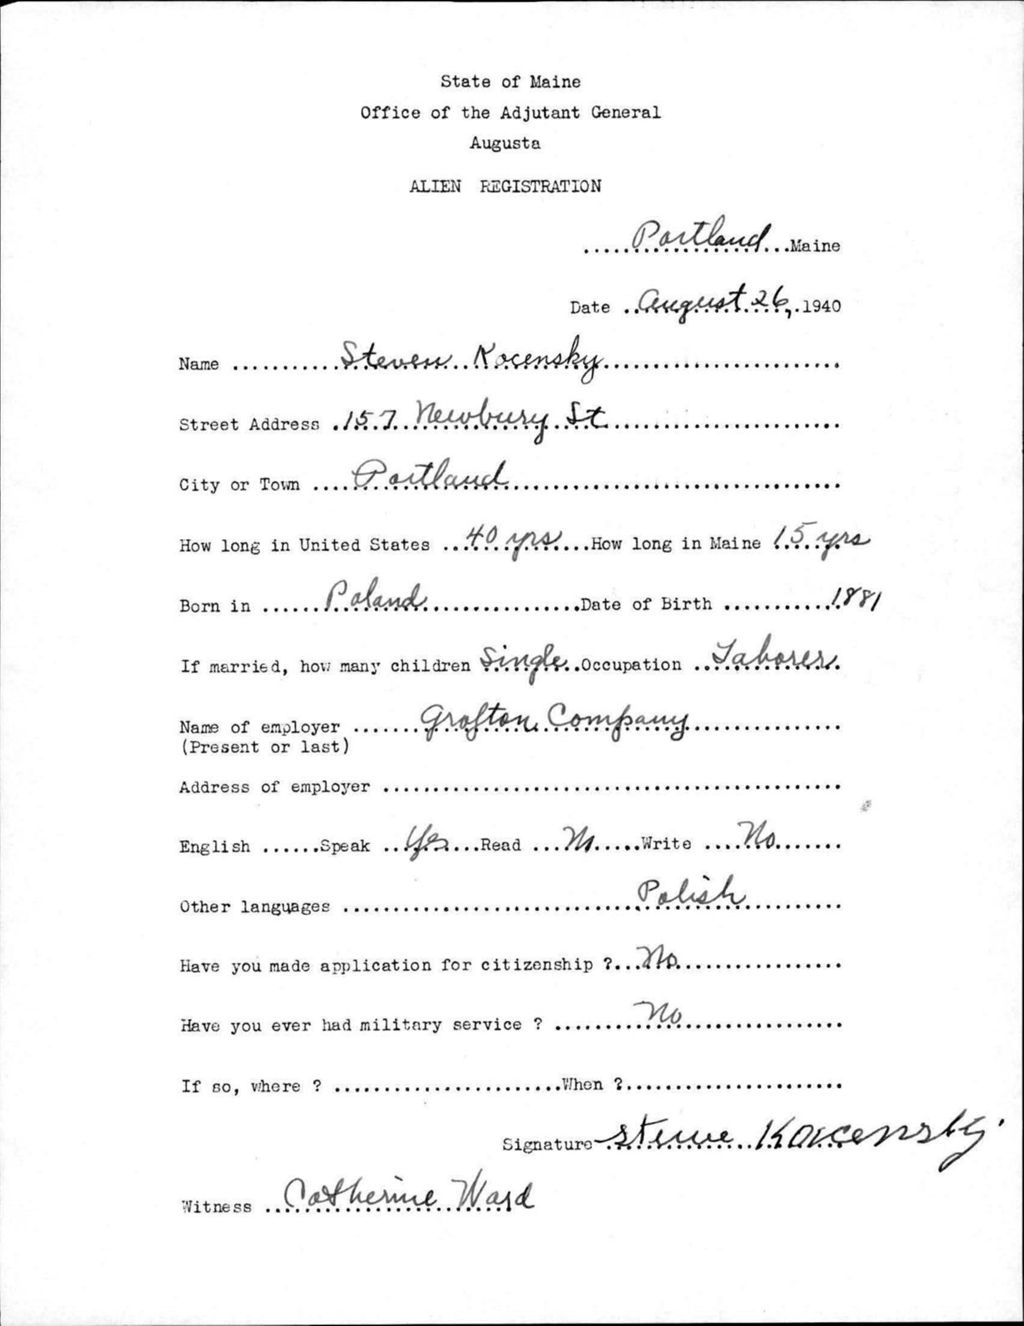 State of Maine
Office of the Adjutant General
Augusta
ALIEN REGISTRATION
.....Portland...Maine
Date ..August 26,.1940
Name ...........Steven Kocensky........................
Street Address .157 Newbury St........................
City or Town ....Portland.................................
How long in United States ...40 yrs....How long in Maine 15 yrs
Born in ......Poland................Date of Birth ............1881
If married, how many children Single..Occupation ..Laborer.
Name of employer .......Grofton Company...............
(Present or last)
Address of employer ...........................................
English ......Speak ..Yes...Read ...No.....Write ....No.......
Other languages ............................Polish..........
Have you made application for citizenship ?...No.................
Have you ever had military service ? .........No.................
If so, where ? .......................When ?......................
Signature Steve Kocensky.
Witness ..Catherine Ward